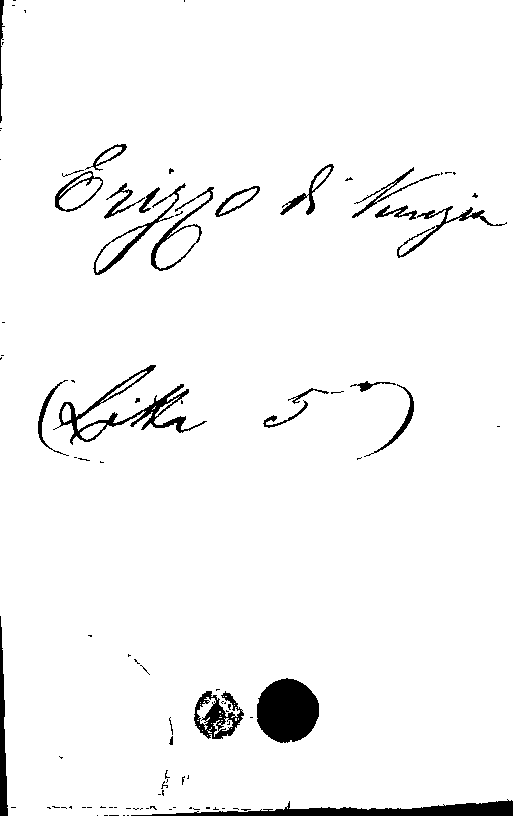 Erizzo di Venezia
(Litta 5°)